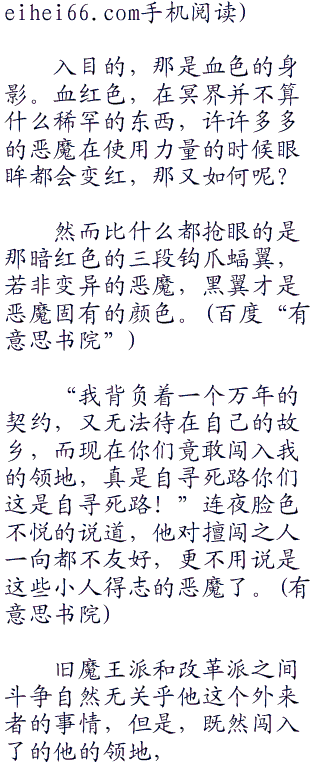 eihei66.com手机阅读）
入目的，那是血色的身
影。血红色，在冥界并不算
什么稀罕的东西，许许多多
的恶魔在使用力量的时候眼
眸都会变红，那又如何呢？
然而比什么都抢眼的是
那暗红色的三段钩爪蝠翼，
若非变异的恶魔，黑翼才是
恶魔固有的颜色。(百度“有
意思书院”)
“我背负着一个万年的
契约，又无法待在自己的故
乡，而现在你们竟敢闯入我
的领地，真是自寻死路你们
这是自寻死路！”连夜脸色
不悦的说道，他对擅闯之人
一向都不友好，更不用说是
这些小人得志的恶魔了。(有
意思书院)
旧魔王派和改革派之间
斗争自然无关乎他这个外来
者的事情，但是，既然闯入
了的他的领地，